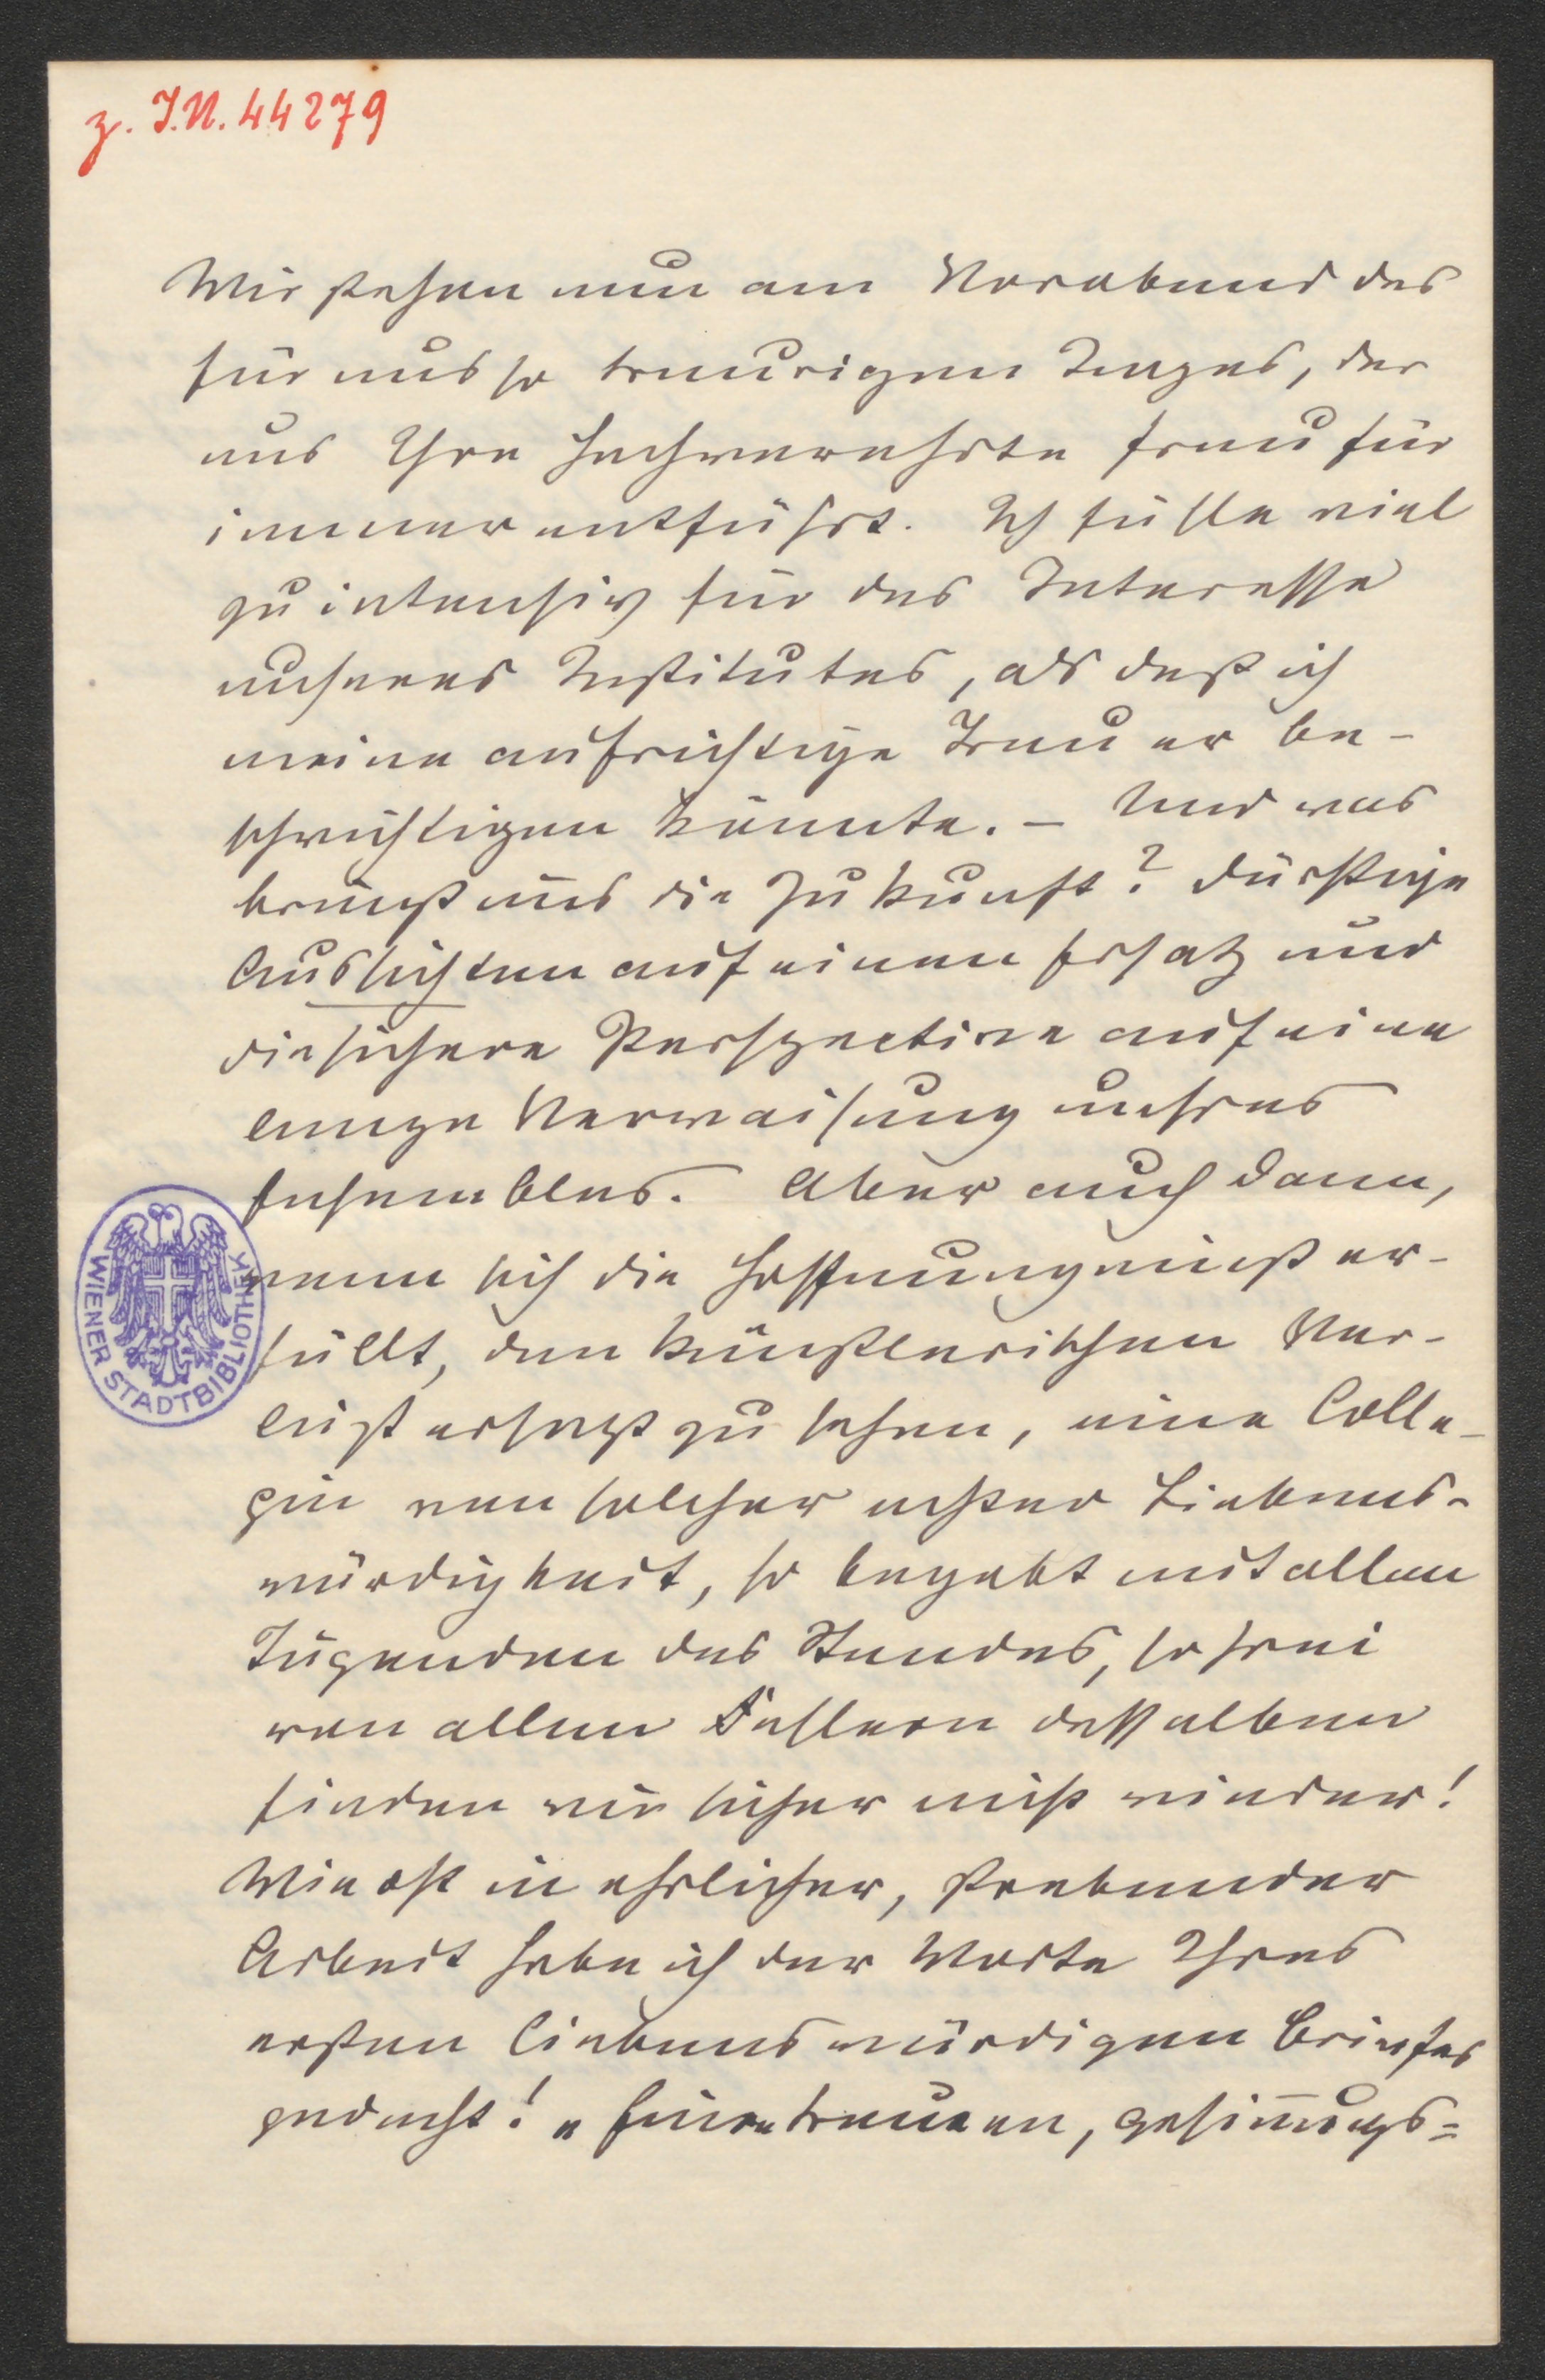 z. I.N. 44279
Wir stehen nun am Vorabend des
für uns so traurigen Tages, der
uns Ihre hochverehrte Frau für
immer entführt. Ich fühle viel
zu intensiv für das Interesse
unseres Institutes, als daß ich
meine aufrichtige Trauer be-
schwichtigen könnte. – Und was
bringt uns die Zukunft? Dürftige
Aussichten auf einen Ersatz und
die sichere Perspective auf eine
lange Verwaisung unsres
Ensembles. Aber auch dann,
wenn sich die Hoffnung einst er-
füllt, den künstlerischen Ver-
lust ersetzt zu sehen, eine Colle-
gin von solcher echter Liebens-
würdigkeit, so begabt mit allen
Tugenden des Standes, so frei
von allen Fehlern desselben
finden wir sicher nicht wieder!
Wie oft in ehrlicher, strebender
Arbeit habe ich der Worte Ihres
ersten liebenswürdigen Briefes
gedacht! „Einen treueren, gesinnungs=
WIENER STADTBIBLIOTHEK